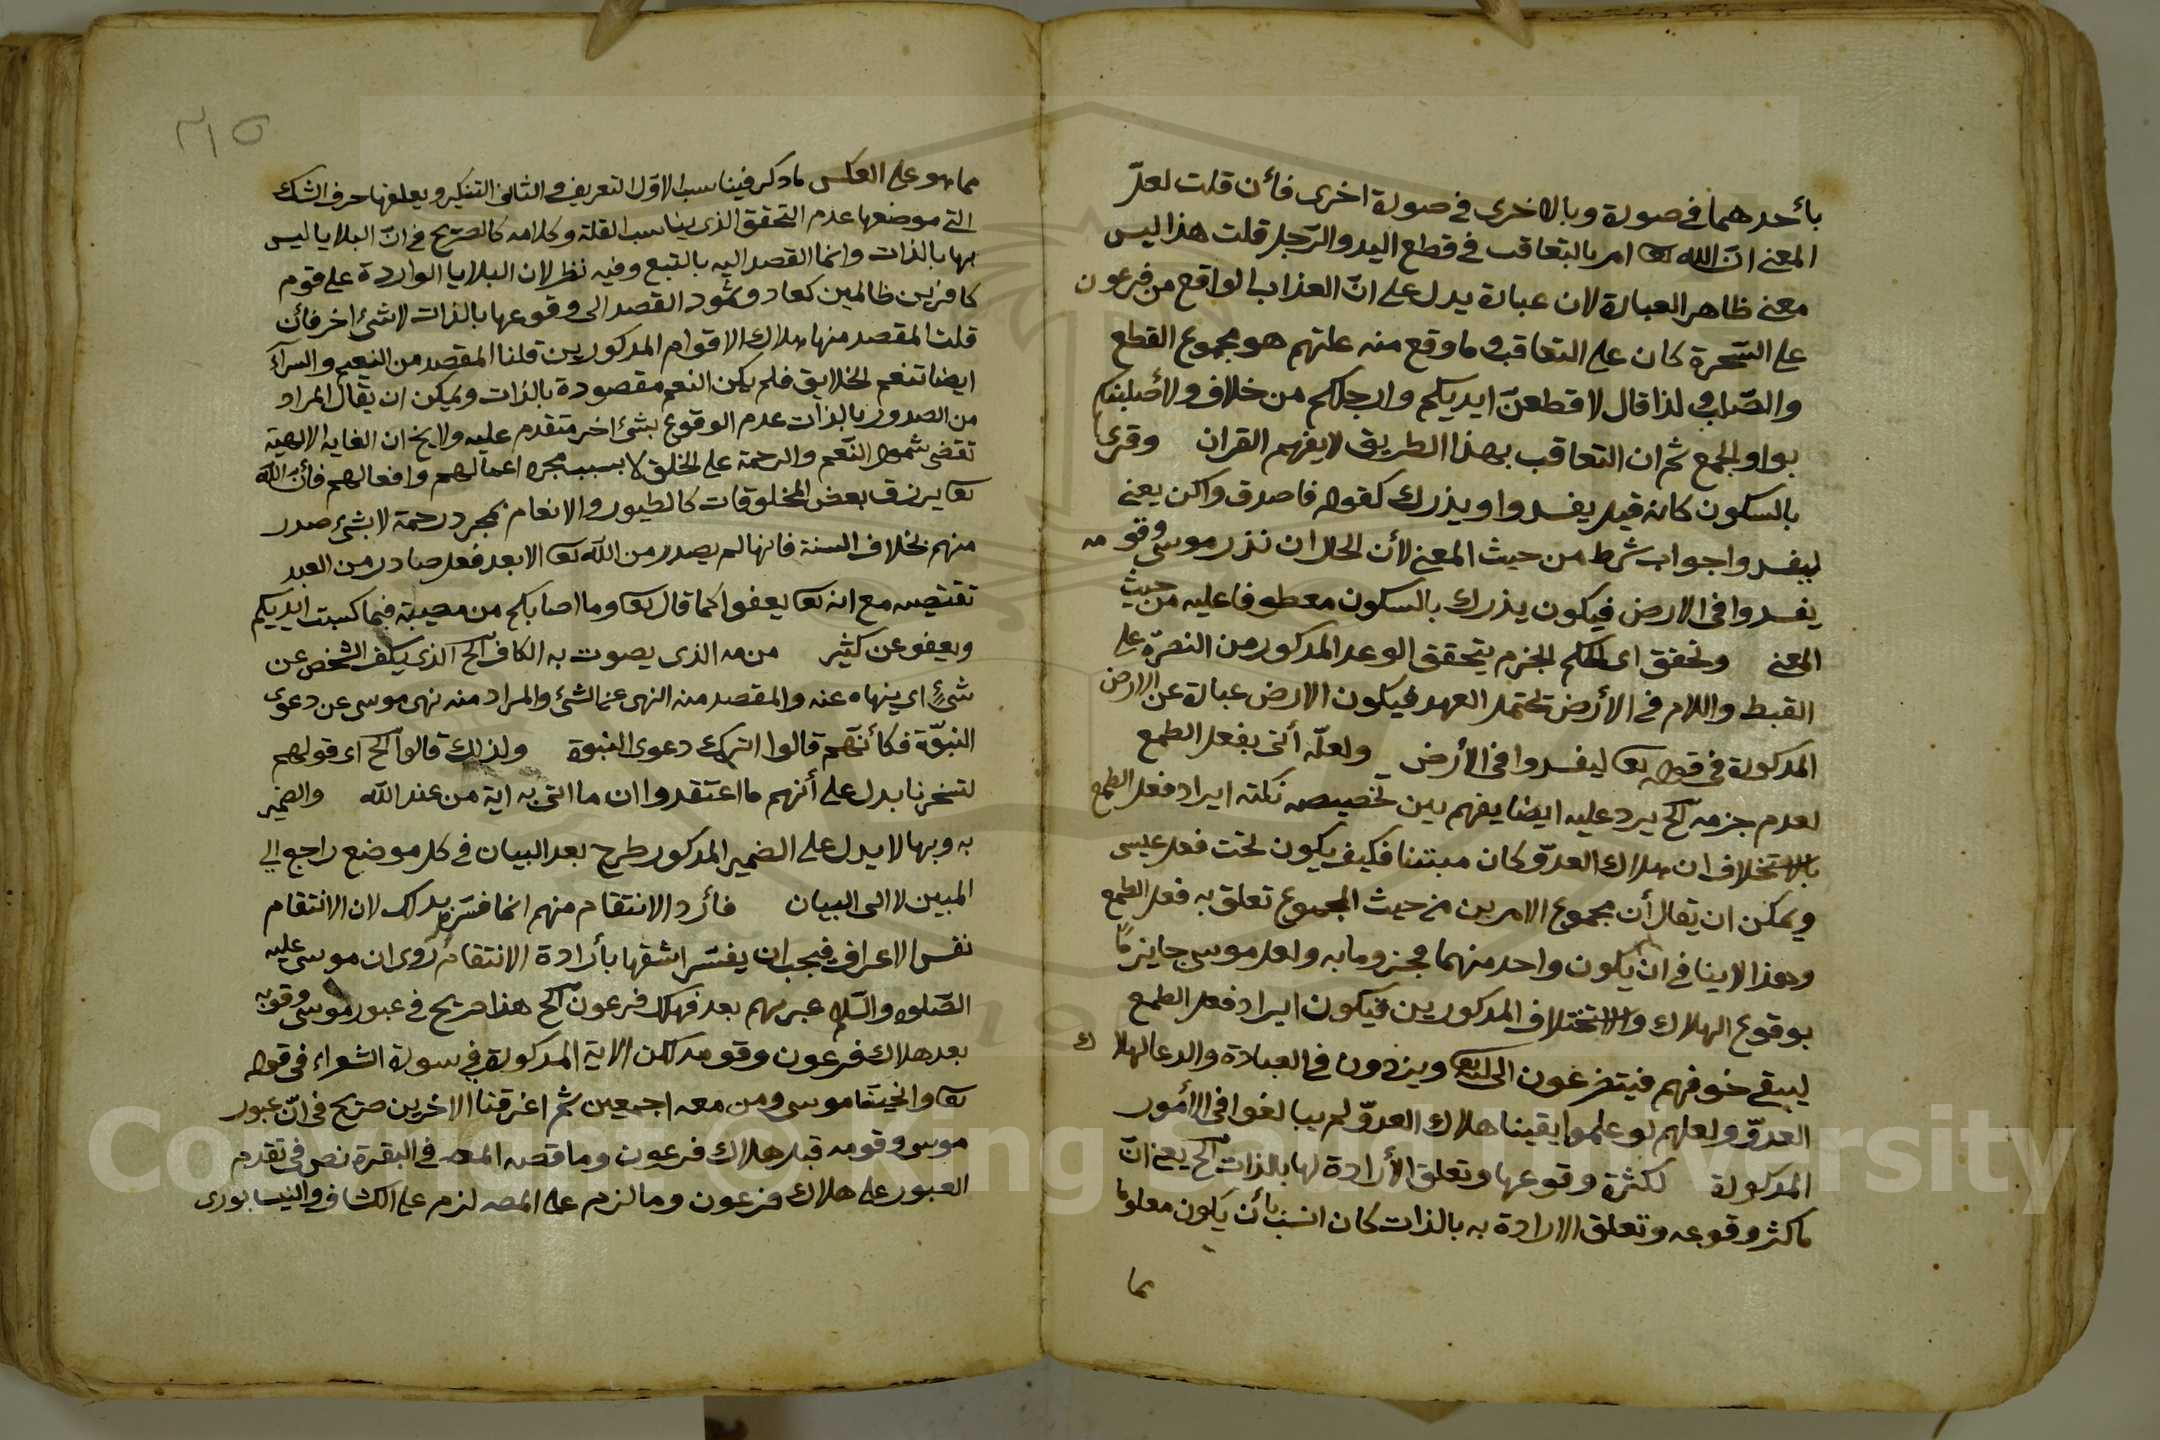 بأحدهما في صورة وبالاخرى في صورة اخرى فأن قلت لعلّ
المعنى انّ الله تع امر بالتعاقب في قطع اليد والرّجل قلت هذا ليس
معنى ظاهر العبارة لان عبارة يدل على انّ العذاب الواقع من فرعون
على السّحرة كان على التعاقب وما وقع منه عليهم هو مجموع القطع
والصّلب ولذا قال لاقطعنّ ايديكم وارجلكم من خلاف ولأصلبنكم
بواو الجمع ثم ان التعاقب بهذا الطريق لا يفهم القران وقرئ
بالسكون كانه قيل يفسدوا ويذرك كقوله فاصدق واكن يعني
ليفسدوا جواب شرط من حيث المعنى لأن الحال ان تذر موسى وقومه
يفسدوا في الارض فيكون يذرك بالسكون معطوفا عليه من حيث
المعنى وتحقق اي الجزم يتحقق الوعد المذكور من النصرة على
القبط واللام في الأرض تحتمل العهد فيكون الارض عبارة عن الارض
المذكورة في قوله تع ليفسدوا في الأرض ولعلّه أتى بفعل الطمع
لعدم جزمه الخ يرد عليه ايضا يفهم بين تخصيصه نكتة ايراد فعل الطمع
بالاستخلاف ان هلاك العدوّ كان فكيف يكون تحت فعل عيسى
ويمكن ان يقال أن مجموع الامرين من حيث المجموع تعلق به فعل الطمع
وهذا لا ينافي ان يكون واحد منهما مجزوما به ولعل موسى
بوقوع الهلاك والاستخلاف المذكورين فيكون ايراد فعل الطمع
ليبقي خوفهم فيتضرعون الى الله تع ويزدون في العبادة والدعا لهلاك
العدوّ ولعلهم لو علموا يقينا هلاك العدوّ لم يبالغوا في الأمور
المذكورة لكثرة وقوعها وتعلق الأرادة لها بالذات الخ يعني انّ
ما كثر وقوعه وتعلق الارادة به بالذات كان انسب بأن يكون معلوما
مما
٣١٥
مما هو على العكس ما ذكر فيناسب الاوّل التعريف والثاني التنكير ويعلقها حرف الشك
التي موضعها عدم التحقق الذي يناسب القلة وكلامه كالصريح في انّ البلايا ليس
بها بالذات وانما القصد اليه بالتبع وفيه نظر لان البلايا الواردة على قوم
كافرين ظالمين كعاد وثمود القصد الى وقوعها بالذات لا شئ اخر فأن
قلت المقصد منها هلاك الاقوام المذكورين قلنا المقصد من النعيم والسرآء
ايضا تنعم الخلايق فلم يكن النعم مقصودة بالذات ويمكن ان يقال المراد
من الصدور بالذات عدم الوقوع بشئ اخر متقدم عليه ولا يخ ان الغاية الالهية
تقتضى شمول النّعم والرحمة على الخلق لا بسبب مجرد اعمالهم وافعالهم فأنّ الله
تع يرزق بعض المخلوقات كالطيور والانعام بمجرد رحمة لا بشئ صدر
منهم بخلاف السنة فانها لم يصدر من الله تع الا بعد فعل صادر من العبد
تقتضيه مع انه تع يعفوا كما قال تع وما اصابكم من مصيبة فبما كسبت ايديكم
ويعفو عن كثير من مه الذى يصوت به الكاف الخ الذى يكف الشخص عن
شئ اي ينهاه عنه والمقصد منه النهى عن الشئ والمراد منه نهى موسى عن دعوى
النبوّة فكأنّهم قالوا اترك دعوى النبوة ولذلك قالوا الخ اى قولهم
لتسحرنا يدل على أنهم ما اعتقدوا ان ما اتى به اية من عند الله والضمير
به وبها لا يدل على الضمير المذكور طرح بعد البيان في كل موضع راجع الى
المبين لا الى البيان فأرد الانتقام منهم انما فسّر بذلك لان الانتقام
نفس الاغراق فيجب ان يفسّر اشقها بأرادة الانتقام روى ان موسى عليه
الصّلوه والسّلام عبر بهم بعد فهلك فرعون الخ هذا صريح في عبور موسى وقومه
بعد هلاك فرعون وقومه لكن الاية المذكورة في سورة الشعراء في قوله
تع وانجينا موسى ومن معه اجمعين ثم اغرقنا الاخرين صريح في انّ عبور
موسى وقومه قبل هلاك فرعون وما قصه المصه في البقرة نص في تقدم
العبور على هلاك فرعون وما لزم على المصه لزم على الكشاف والنيسابورى
Copyright © King Saud University